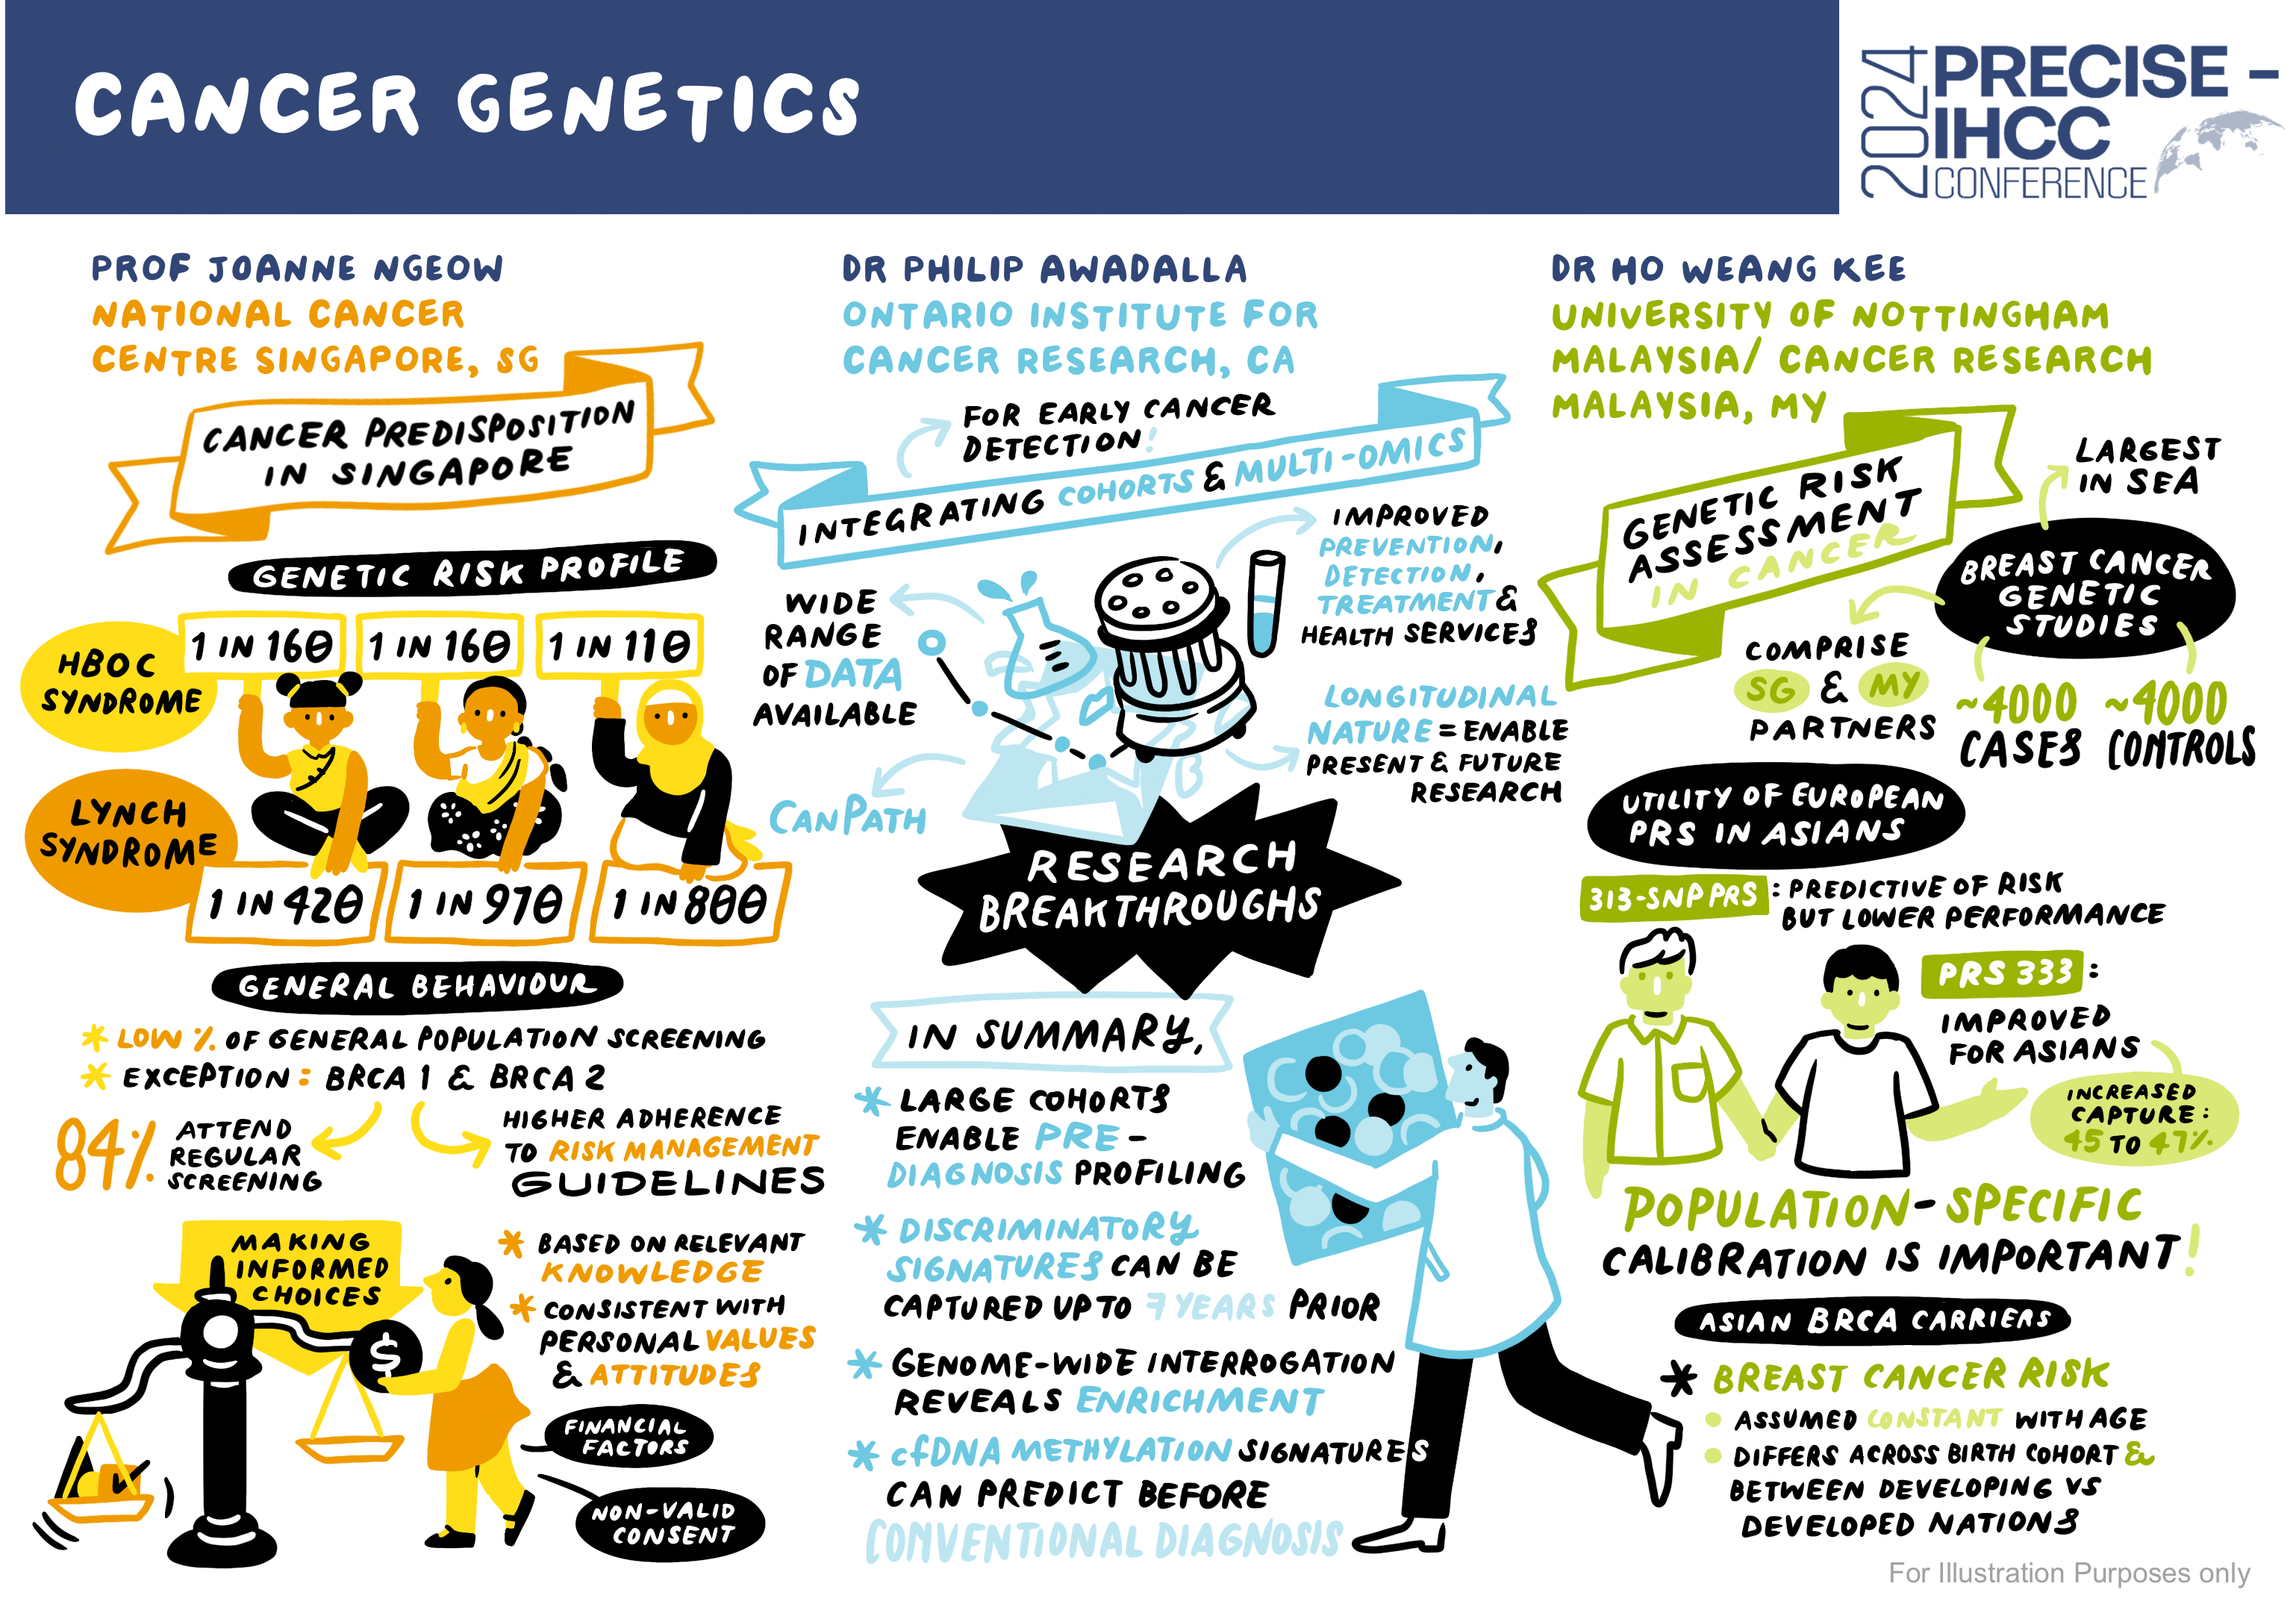 CANCER GENETICS
2024
PRECISE –
IHCC
CONFERENCE
PROF JOANNE NGEOW
NATIONAL CANCER
CENTRE SINGAPORE, SG
CANCER PREDISPOSITION
IN SINGAPORE
GENETIC RISK PROFILE
HBOC
SYNDROME
1 IN 160
1 IN 160
1 IN 110
LYNCH
SYNDROME
1 IN 420
1 IN 970
1 IN 800
GENERAL BEHAVIOUR
* LOW % OF GENERAL POPULATION SCREENING
* EXCEPTION: BRCA 1 & BRCA 2
84% ATTEND
REGULAR
SCREENING
HIGHER ADHERENCE
TO RISK MANAGEMENT
GUIDELINES
MAKING
INFORMED
CHOICES
$
* BASED ON RELEVANT
KNOWLEDGE
* CONSISTENT WITH
PERSONAL VALUES
& ATTITUDES
FINANCIAL
FACTORS
NON-VALID
CONSENT
DR PHILIP AWADALLA
ONTARIO INSTITUTE FOR
CANCER RESEARCH, CA
FOR EARLY CANCER
DETECTION!
INTEGRATING COHORTS & MULTI-OMICS
WIDE
RANGE
OF DATA
AVAILABLE
IMPROVED
PREVENTION,
DETECTION,
TREATMENT &
HEALTH SERVICES
LONGITUDINAL
NATURE = ENABLE
PRESENT & FUTURE
RESEARCH
CANPATH
RESEARCH
BREAKTHROUGHS
IN SUMMARY,
* LARGE COHORTS
ENABLE PRE-
DIAGNOSIS PROFILING
* DISCRIMINATORY
SIGNATURES CAN BE
CAPTURED UP TO 7 YEARS PRIOR
* GENOME-WIDE INTERROGATION
REVEALS ENRICHMENT
* cfDNA METHYLATION SIGNATURES
CAN PREDICT BEFORE
CONVENTIONAL DIAGNOSIS
DR HO WEANG KEE
UNIVERSITY OF NOTTINGHAM
MALAYSIA/ CANCER RESEARCH
MALAYSIA, MY
GENETIC RISK
ASSESSMENT
IN CANCER
LARGEST
IN SEA
BREAST CANCER
GENETIC
STUDIES
COMPRISE
SG & MY
PARTNERS
~4000
CASES
~4000
CONTROLS
UTILITY OF EUROPEAN
PRS IN ASIANS
313-SNP PRS : PREDICTIVE OF RISK
BUT LOWER PERFORMANCE
PRS 333 :
IMPROVED
FOR ASIANS
INCREASED
CAPTURE:
45 TO 47%
POPULATION-SPECIFIC
CALIBRATION IS IMPORTANT!
ASIAN BRCA CARRIERS
* BREAST CANCER RISK
• ASSUMED CONSTANT WITH AGE
• DIFFERS ACROSS BIRTH COHORT &
BETWEEN DEVELOPING VS
DEVELOPED NATIONS
For Illustration Purposes only